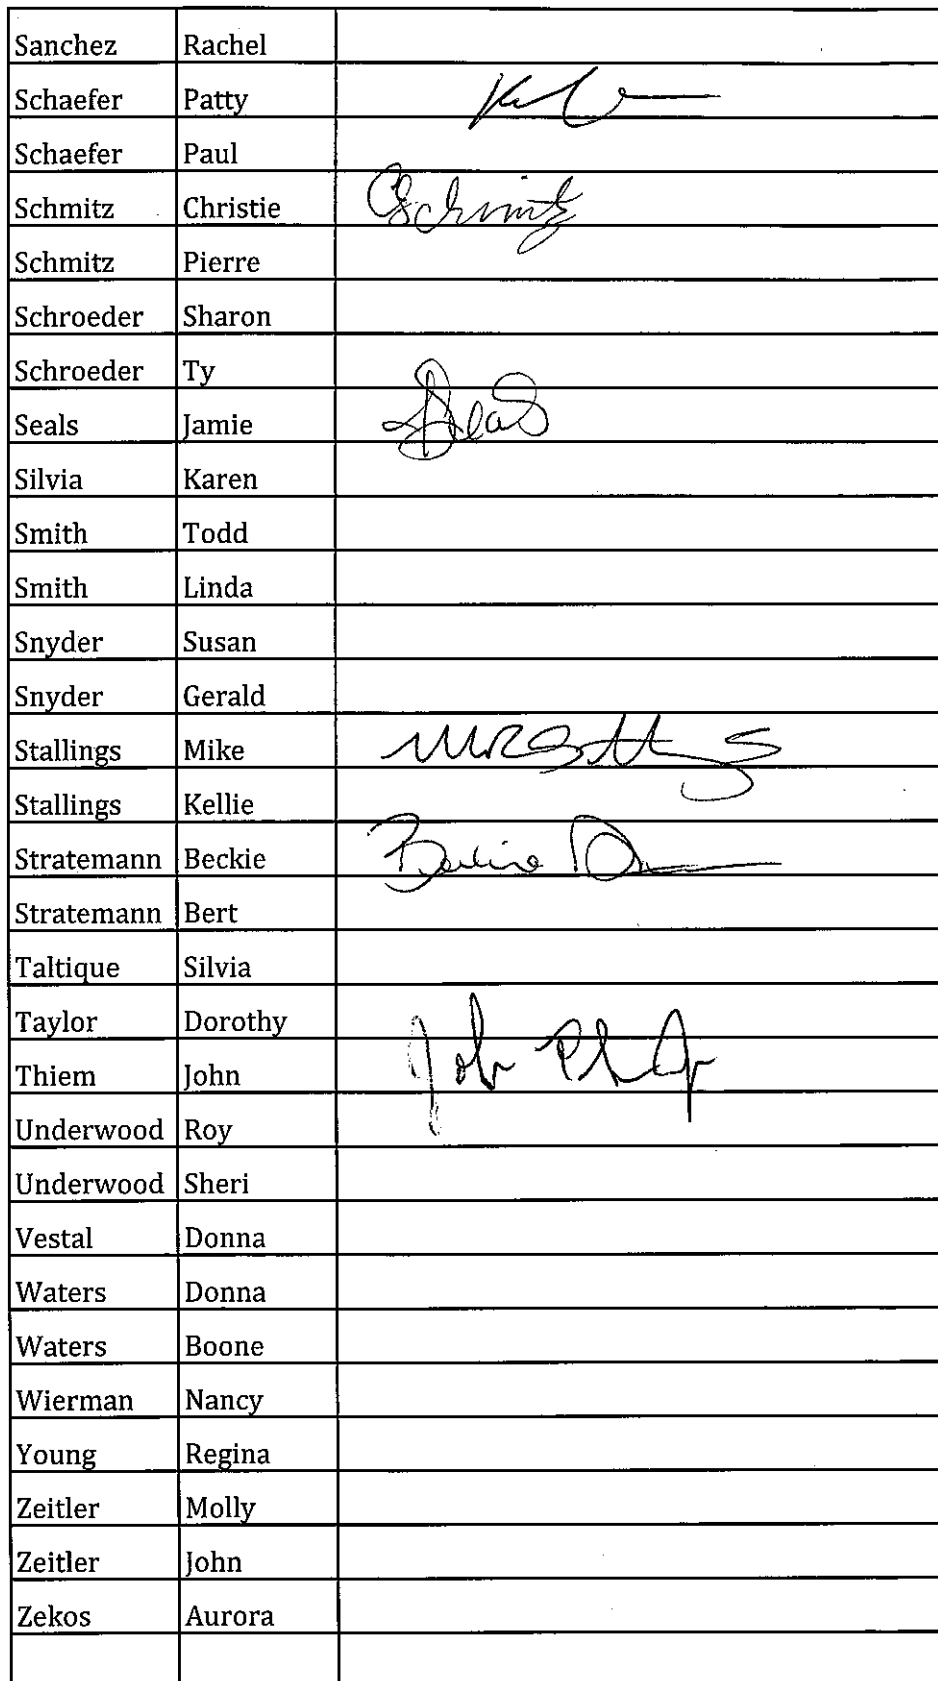 Sanchez Rachel
Schaefer Patty
Schaefer Paul
Schmitz Christie CSchmitz
Schmitz Pierre
Schroeder Sharon
Schroeder Ty
Seals Jamie JSeals
Silvia Karen
Smith Todd
Smith Linda
Snyder Susan
Snyder Gerald
Stallings Mike
Stallings Kellie
Stratemann Beckie
Stratemann Bert
Taltique Silvia
Taylor Dorothy
Thiem John John
Underwood Roy
Underwood Sheri
Vestal Donna
Waters Donna
Waters Boone
Wierman Nancy
Young Regina
Zeitler Molly
Zeitler John
Zekos Aurora